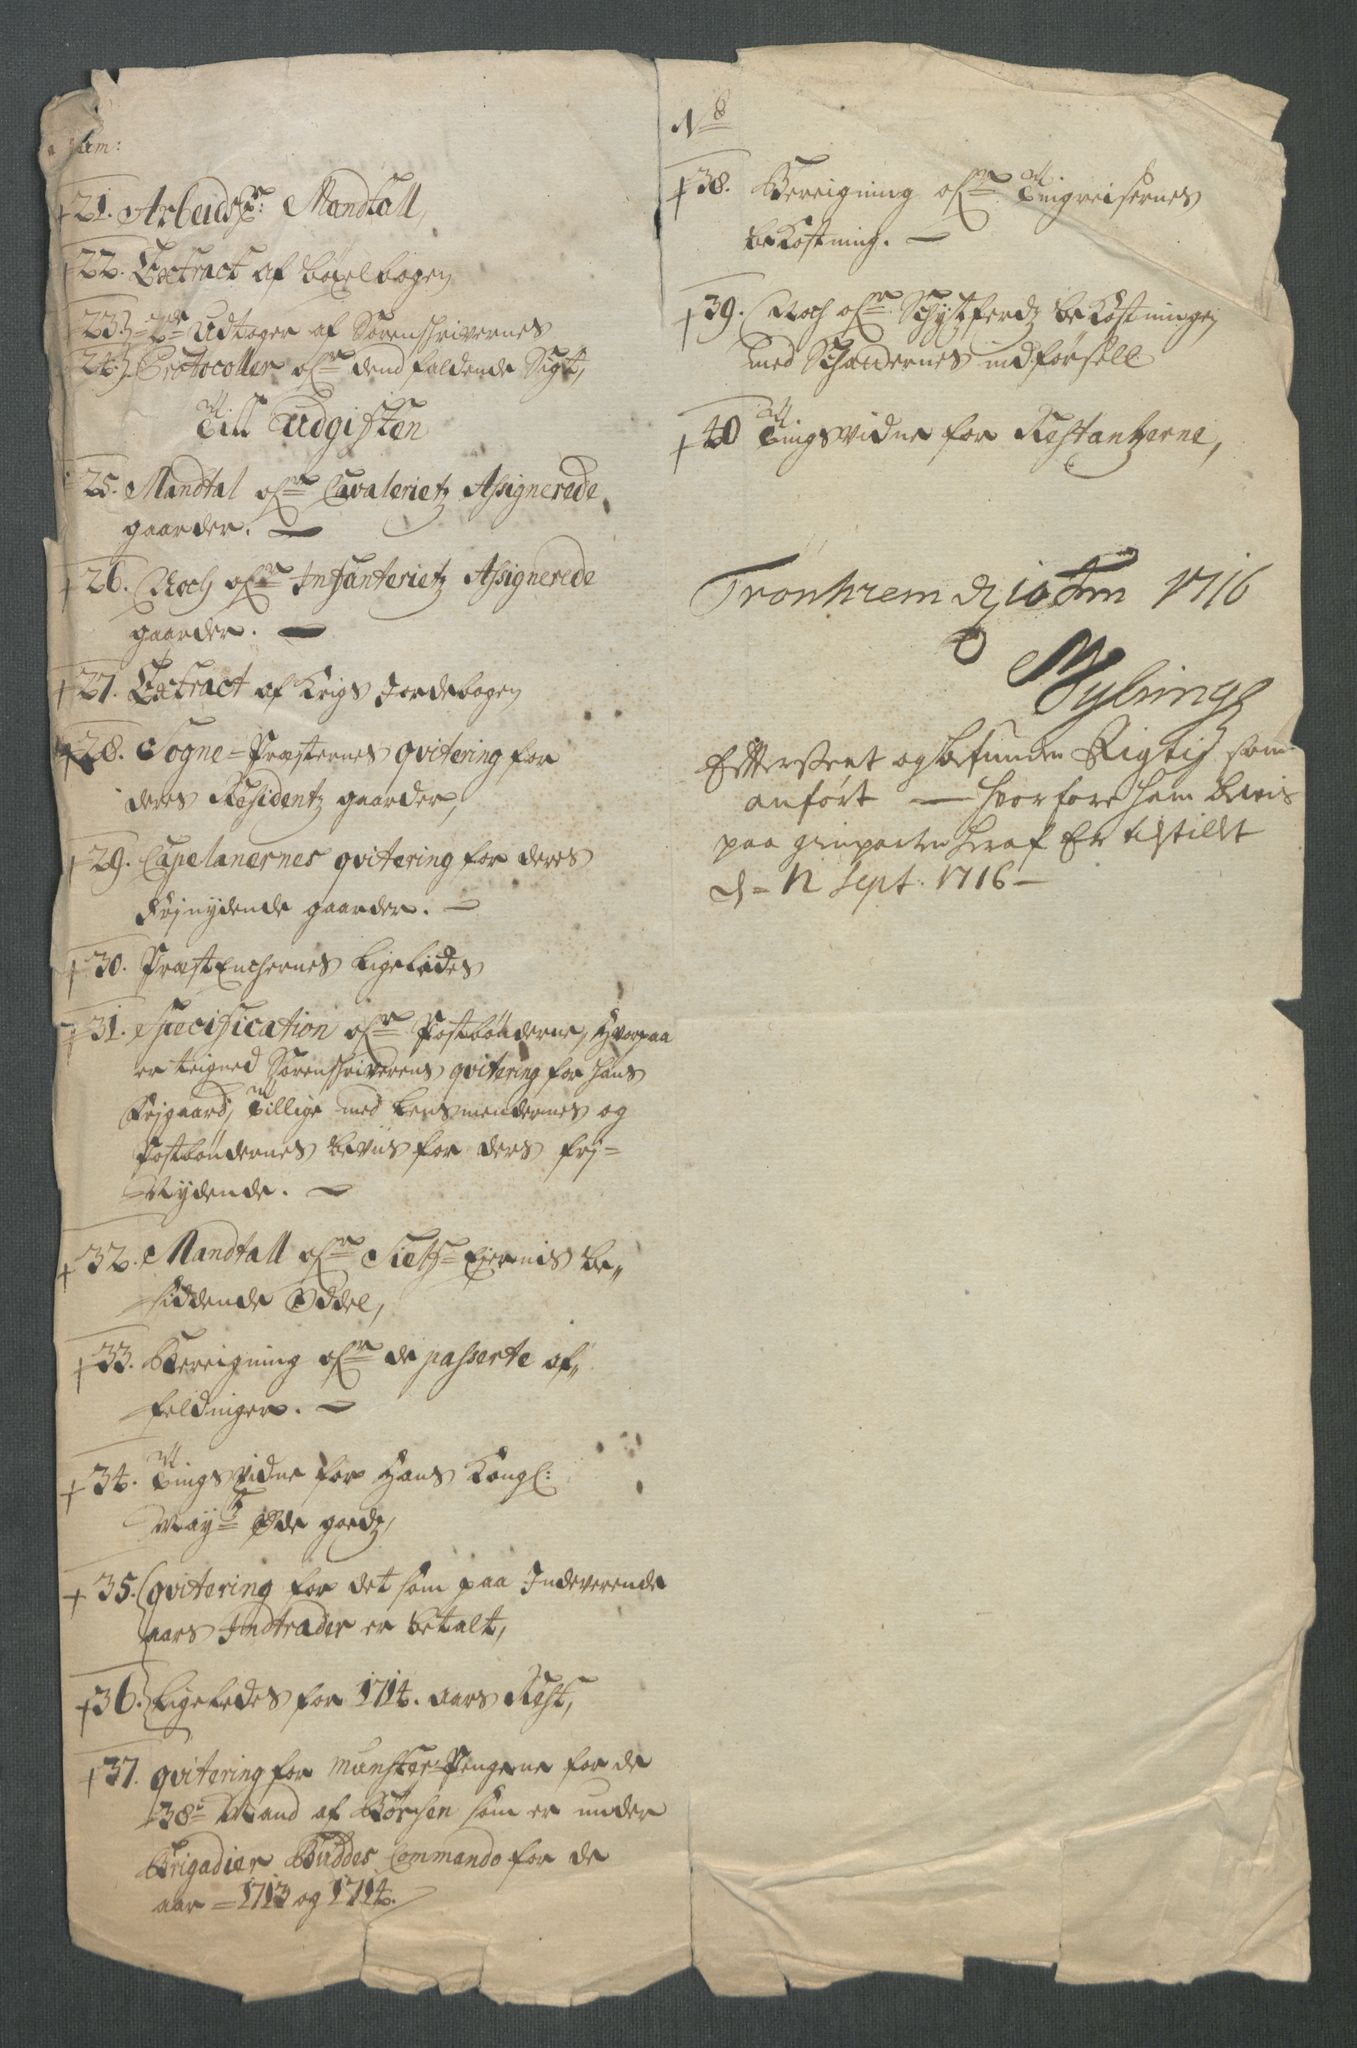 21. Arbeids: Mandtall,
22. Extract af böxelbogen
23.} 2de Udtoger af Sorenschrivernes
24.} Protocoller ofr dend faldende Sigt,
Till Udgiften
25. Mandtal ofr Cavalerietz Assignerede
gaarder.
26. Noch ofr Infanterietz Assignerede
gaarder.
27. Extract af Krigs Jordebogen
28. Sogne-Præsternes qvitering for
deres Residentz gaarder,
29. Capelanernes qvitering for deres
frj nydende gaarder.
30. Præst Enchernes ligeledes
31. Specification ofr Postbönderne, hvorpaa
er teigned Sorenschriverens qvitering for hans
frjgaard, Tillige med Lensmendernes og
Postböndernes beviis for ders frj-
Nydende.
32. Mandtall ofr Sielfs Ejernis be„
siddende Oddel,
33. Bereigning ofr de passerte af„
feldninger.
34. Tings vidne for Hans Kongl:
Mayts Øde goedz,
35. qvitering for det som paa Indeverende
aars Indtrader er betalt,
36. Ligeledes for 1714. aars Rest,
37. qvitering for Munster-Pengene for de
38: Mand af Börsen som er under
Brigadier Buddes Commando for de
aar - 1713 og 1714.
No
38. Bereigning ofr Tingreisernes
bekostning.
39. Noch ofr Schytzferdz bekostningen
med Schaedernes indførsell
40 Tingsvidne for Restantzerne,
Tronhiem d 10 Jun 1716
Nybring
Efterseet og befunden Rigtig som
anfört — hvorfore ham bevis
paa genparten heraf Er tilstillet
d - 12 Sept. 1716 -